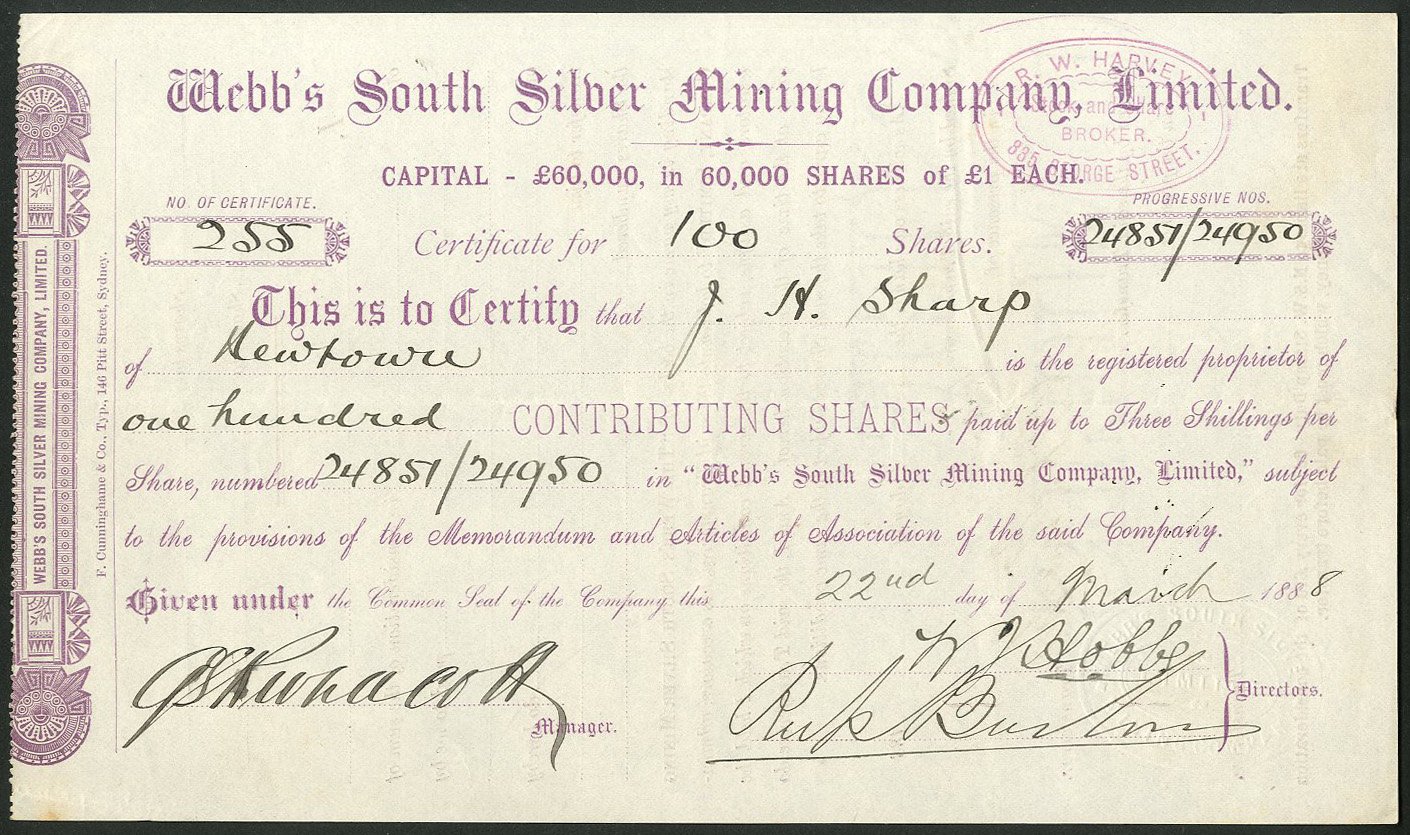 Webb's South Silver Mining Company, Limited.
R. W. HARVEY
Stock and Share
BROKER.
835 GEORGE STREET.
CAPITAL - £60,000, in 60,000 SHARES of £1 EACH.
NO. OF CERTIFICATE.
PROGRESSIVE NOS.
255
Certificate for 100 Shares.
24851/24950
This is to Certify that J. H. Sharp
of Newtown is the registered proprietor of
one hundred CONTRIBUTING SHARES paid up to Three Shillings per
Share, numbered 24851/24950 in "Webb's South Silver Mining Company, Limited," subject
to the provisions of the Memorandum and Articles of Association of the said Company.
Given under the Common Seal of the Company this 22nd day of March 1888
Hobbs
Burton
Directors.
Manager.
WEBB'S SOUTH SILVER MINING COMPANY, LIMITED.
F. Cunninghame & Co., Typ., 146 Pitt Street, Sydney.